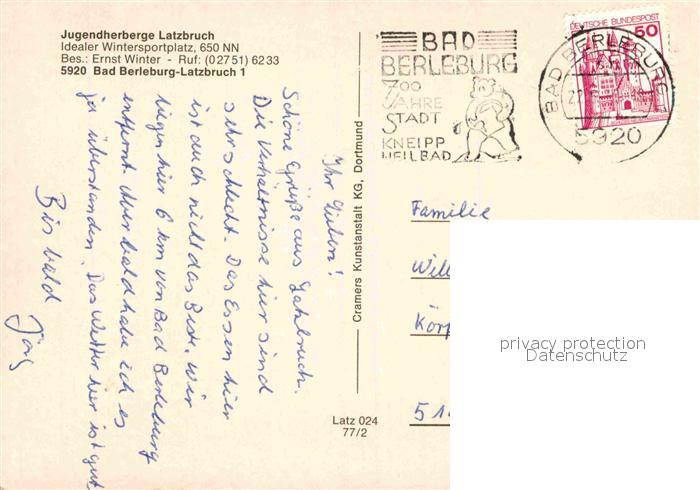 Jugendherberge Latzbruch
Idealer Wintersportplatz, 650 NN
Bes.: Ernst Winter - Ruf: (0 27 51) 62 33
5920 Bad Berleburg-Latzbruch 1
Ihr Lieben!
Schöne Grüße aus Latzbruch.
Die Verhältnisse hier sind
sehr schlecht. Das Essen hier
ist auch nicht das Beste. Wir
liegen hier 6 km von Bad Berleburg
entfernt. Aber bald habe ich es
ja überstanden. Das Wetter hier ist gut
Bis bald
Jörg
Cramers Kunstanstalt KG, Dortmund
Latz 024
77/2
BAD
BERLEBURG
700
JAHRE
STADT
KNEIPP
HEILBAD
DEUTSCHE BUNDESPOST
50
BAD BERLEBURG
5920
Familie
Will
Körp
51
privacy protection
Datenschutz